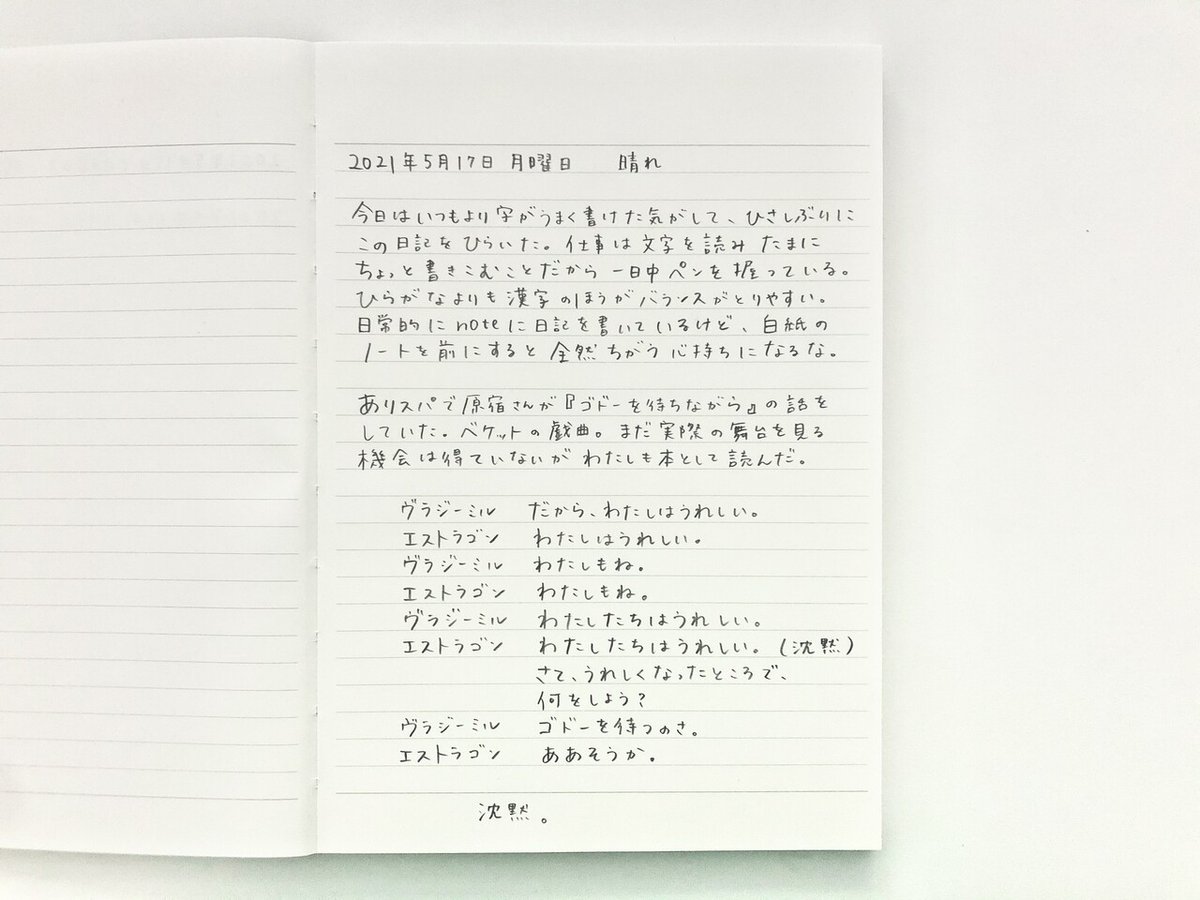 2021年5月17日 月曜日 晴れ
今日はいつもより字がうまく書けた気がして、ひさしぶりに
この日記をひらいた。仕事は文字を読みたまに
ちょっと書きこむことだから一日中ペンを握っている。
ひらがなよりも漢字のほうがバランスがとりやすい。
日常的にnoteに日記を書いているけど、白紙の
ノートを前にすると全然ちがう心持ちになるな。
ありスパで原宿さんが『ゴドーを待ちながら』の話を
していた。ベケットの戯曲。まだ実際の舞台を見る
機会は得ていないがわたしも本として読んだ。
ヴラジーミル だから、わたしはうれしい。
エストラゴン わたしはうれしい。
ヴラジーミル わたしもね。
エストラゴン わたしもね。
ヴラジーミル わたしたちはうれしい。
エストラゴン わたしたちはうれしい。(沈黙)
さて、うれしくなったところで、
何をしよう?
ヴラジーミル ゴドーを待つのさ。
エストラゴン ああそうか。
沈黙。